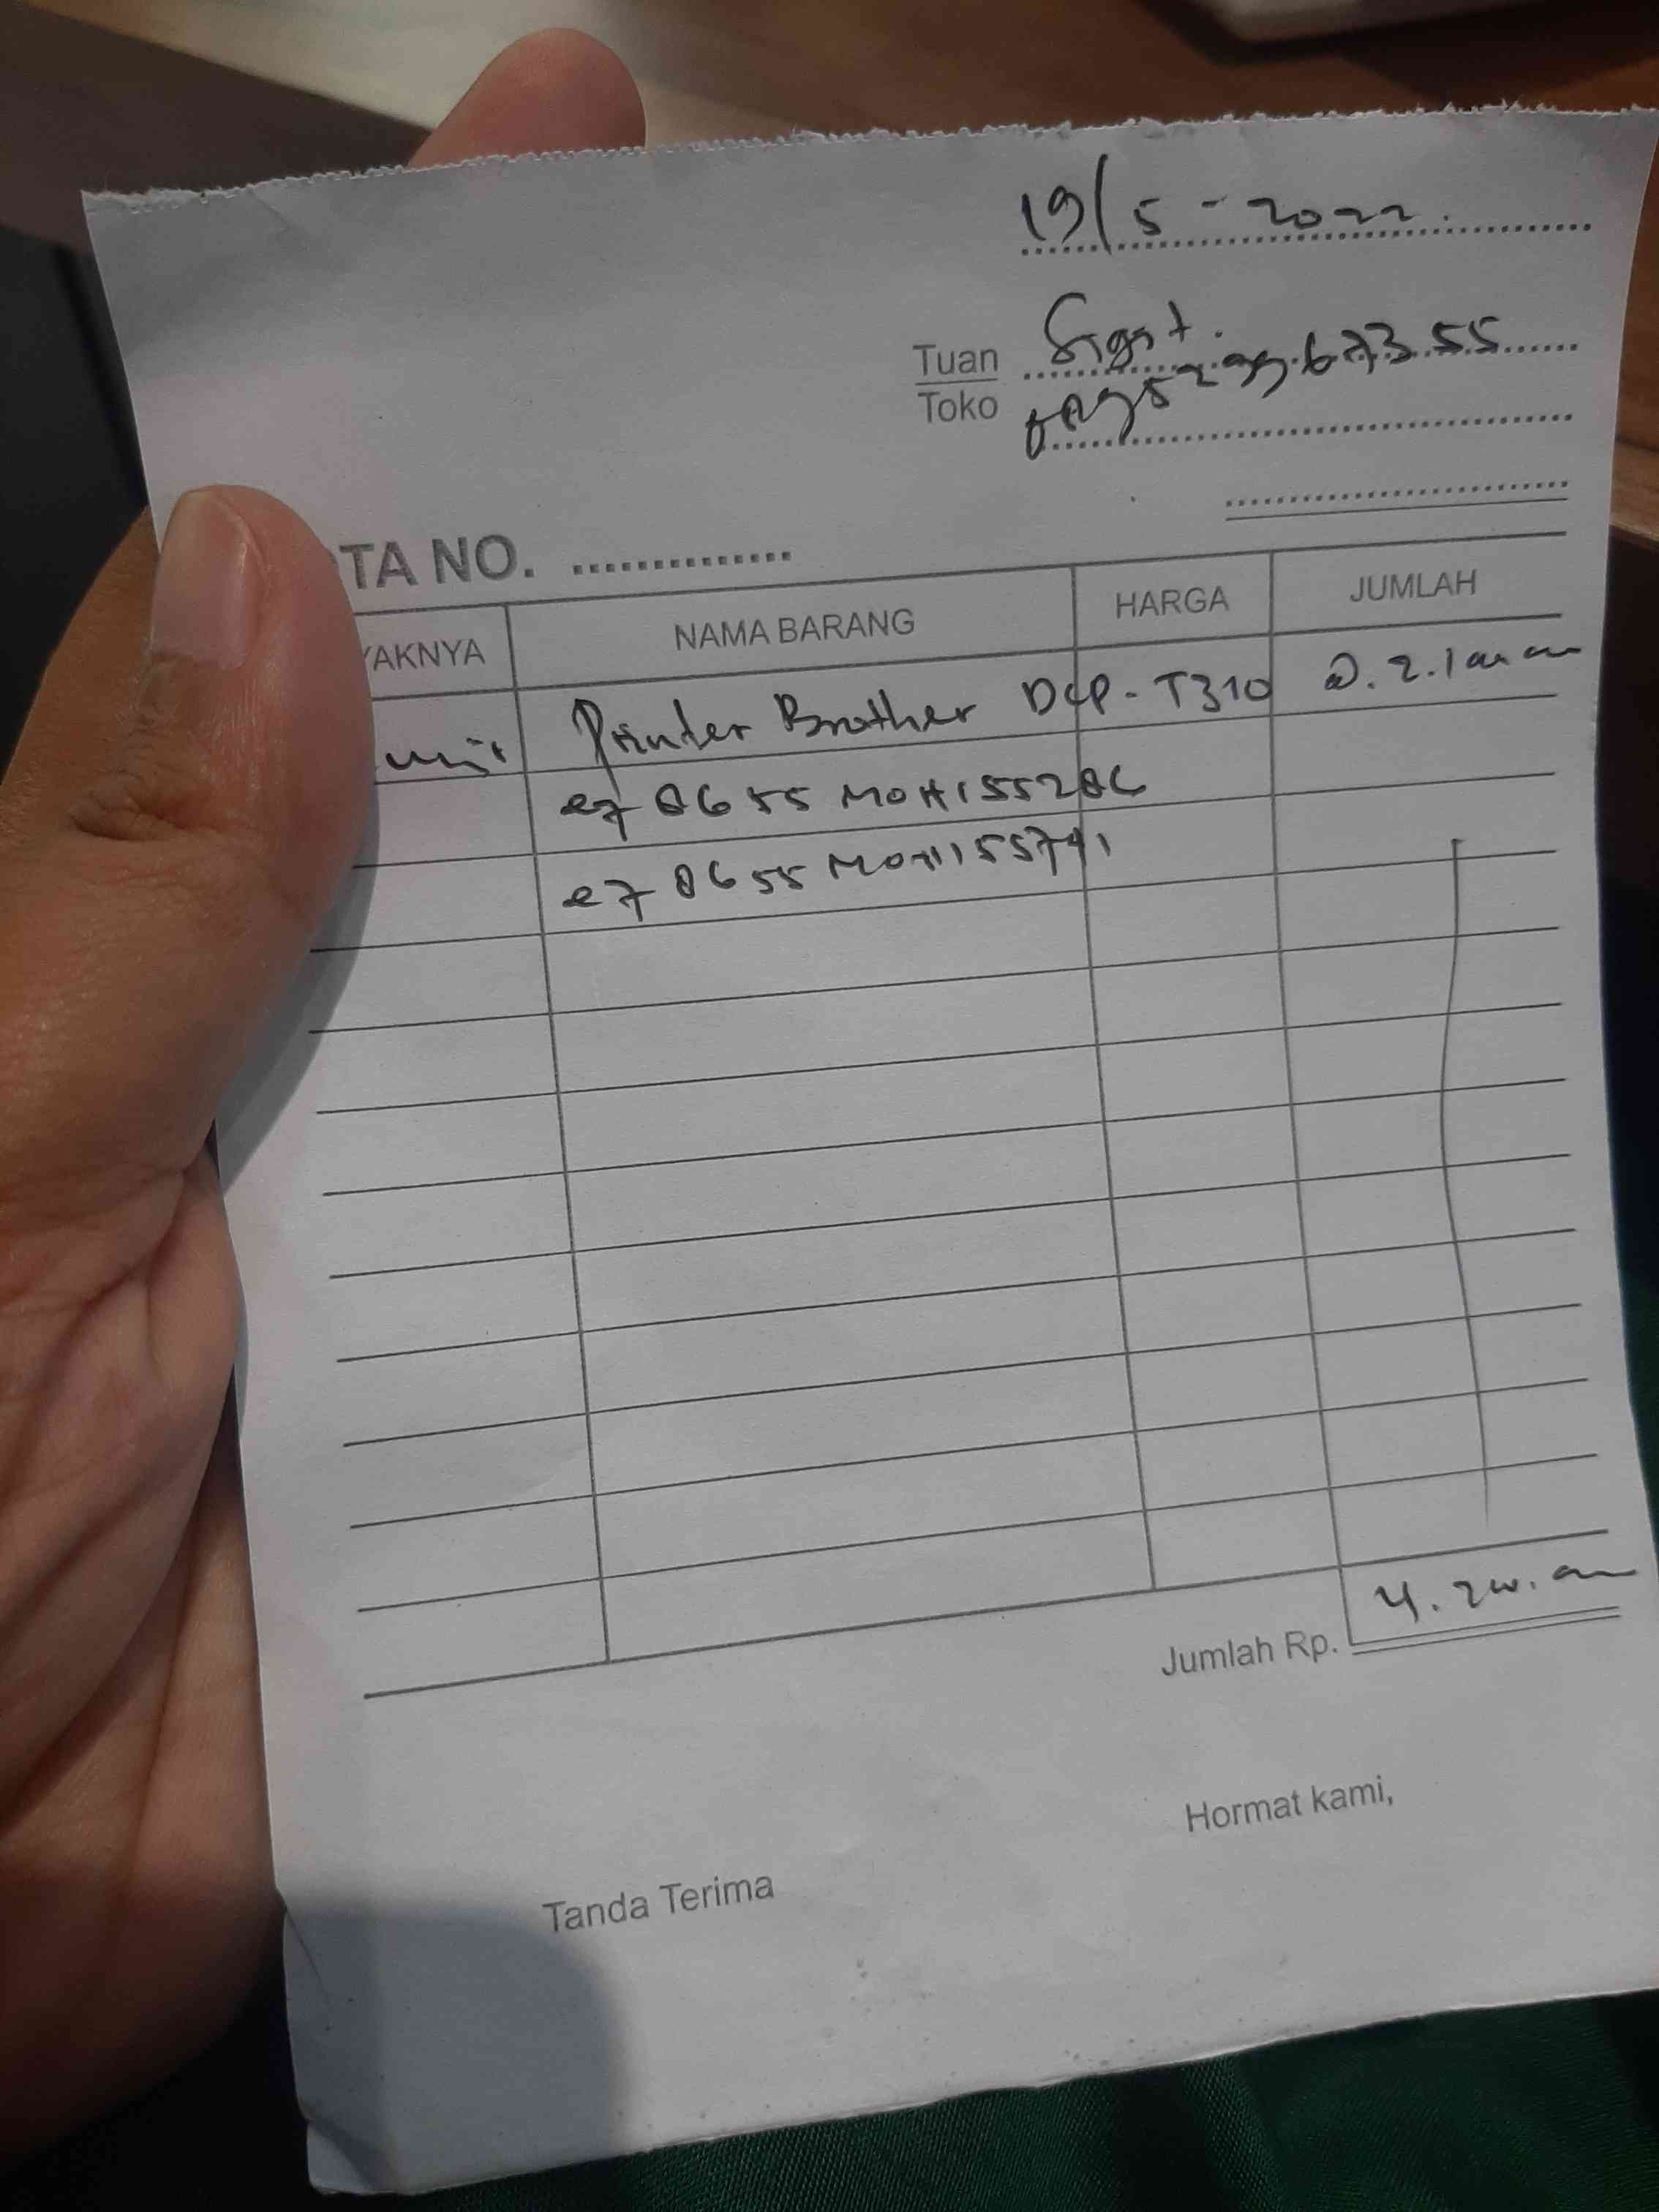 19/5-2022.
Tuan Sigit.
Toko 0895 299.673.55
TA NO. ..............
YAKNYA NAMA BARANG HARGA JUMLAH
unit Printer Brother DCP-T310 @. 2.100.000
e7 8655 M0H155286
e7 8655 M0H155791
Jumlah Rp. 4.200.000
Hormat kami,
Tanda Terima